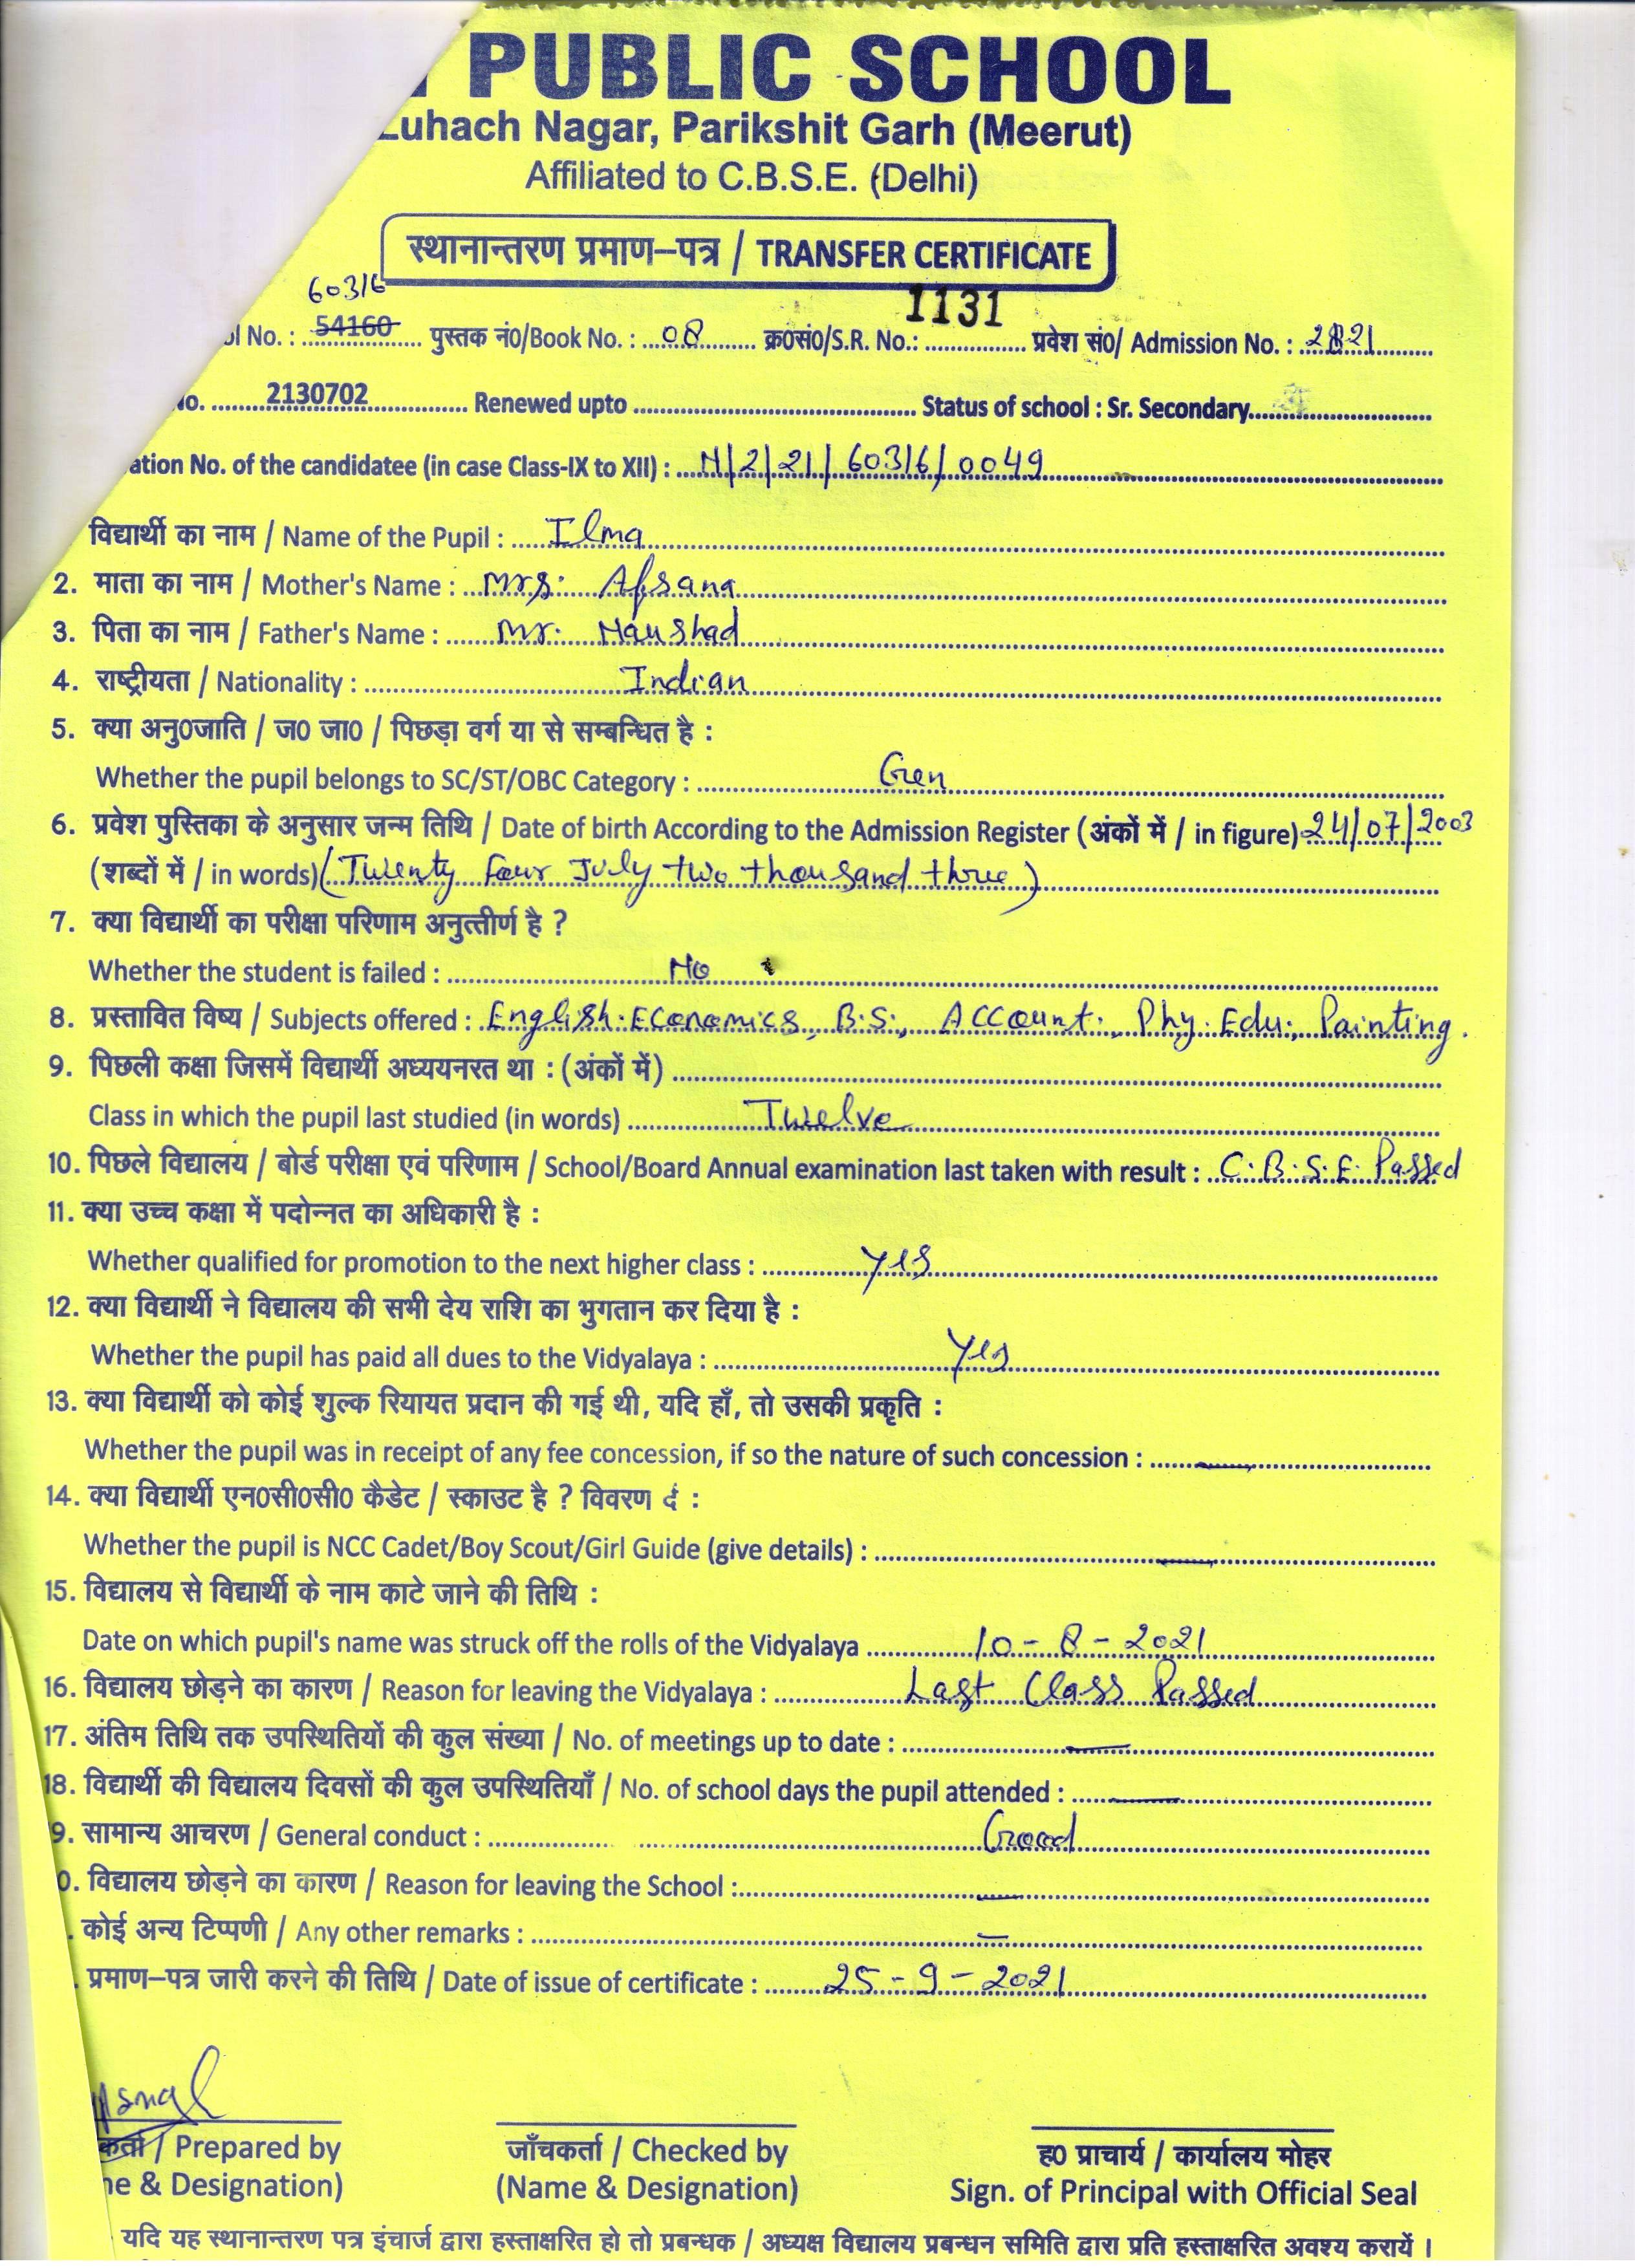 PUBLIC SCHOOL
Luhach Nagar, Parikshit Garh (Meerut)
Affiliated to C.B.S.E. (Delhi)
स्थानान्तरण प्रमाण–पत्र / TRANSFER CERTIFICATE
60316 1131
ol No. : 54160 पुस्तक नं0/Book No. : 08 क्र0सं0/S.R. No.: प्रवेश सं0/ Admission No. : 2821
No. 2130702 Renewed upto Status of school : Sr. Secondary
ation No. of the candidatee (in case Class-IX to XII) : N/2/21/60316/0049
विद्यार्थी का नाम / Name of the Pupil : Ilma
2. माता का नाम / Mother's Name : Mrs. Afsana
3. पिता का नाम / Father's Name : Mr. Naushad
4. राष्ट्रीयता / Nationality : Indian
5. क्या अनु0जाति / ज0 जा0 / पिछड़ा वर्ग या से सम्बन्धित है :
Whether the pupil belongs to SC/ST/OBC Category : Gen
6. प्रवेश पुस्तिका के अनुसार जन्म तिथि / Date of birth According to the Admission Register (अंकों में / in figure) 24/07/2003
(शब्दों में / in words) (Twenty four July two thousand three)
7. क्या विद्यार्थी का परीक्षा परिणाम अनुत्तीर्ण है ?
Whether the student is failed : No
8. प्रस्तावित विष्य / Subjects offered : English. Economics, B.S., Account., Phy. Edu., Painting.
9. पिछली कक्षा जिसमें विद्यार्थी अध्ययनरत था : (अंकों में)
Class in which the pupil last studied (in words) Twelve
10. पिछले विद्यालय / बोर्ड परीक्षा एवं परिणाम / School/Board Annual examination last taken with result : C.B.S.E. Passed
11. क्या उच्च कक्षा में पदोन्नत का अधिकारी है :
Whether qualified for promotion to the next higher class : yes
12. क्या विद्यार्थी ने विद्यालय की सभी देय राशि का भुगतान कर दिया है :
Whether the pupil has paid all dues to the Vidyalaya : yes
13. क्या विद्यार्थी को कोई शुल्क रियायत प्रदान की गई थी, यदि हाँ, तो उसकी प्रकृति :
Whether the pupil was in receipt of any fee concession, if so the nature of such concession : —
14. क्या विद्यार्थी एन0सी0सी0 कैडेट / स्काउट है ? विवरण दं :
Whether the pupil is NCC Cadet/Boy Scout/Girl Guide (give details) : —
15. विद्यालय से विद्यार्थी के नाम काटे जाने की तिथि :
Date on which pupil's name was struck off the rolls of the Vidyalaya 10-8-2021
16. विद्यालय छोड़ने का कारण / Reason for leaving the Vidyalaya : Last Class Passed
17. अंतिम तिथि तक उपस्थितियों की कुल संख्या / No. of meetings up to date : —
18. विद्यार्थी की विद्यालय दिवसों की कुल उपस्थितियाँ / No. of school days the pupil attended : —
9. सामान्य आचरण / General conduct : Good
0. विद्यालय छोड़ने का कारण / Reason for leaving the School : —
. कोई अन्य टिप्पणी / Any other remarks : —
. प्रमाण–पत्र जारी करने की तिथि / Date of issue of certificate : 25-9-2021
कर्ता / Prepared by जाँचकर्ता / Checked by ह0 प्राचार्य / कार्यालय मोहर
ne & Designation) (Name & Designation) Sign. of Principal with Official Seal
यदि यह स्थानान्तरण पत्र इंचार्ज द्वारा हस्ताक्षरित हो तो प्रबन्धक / अध्यक्ष विद्यालय प्रबन्धन समिति द्वारा प्रति हस्ताक्षरित अवश्य करायें ।